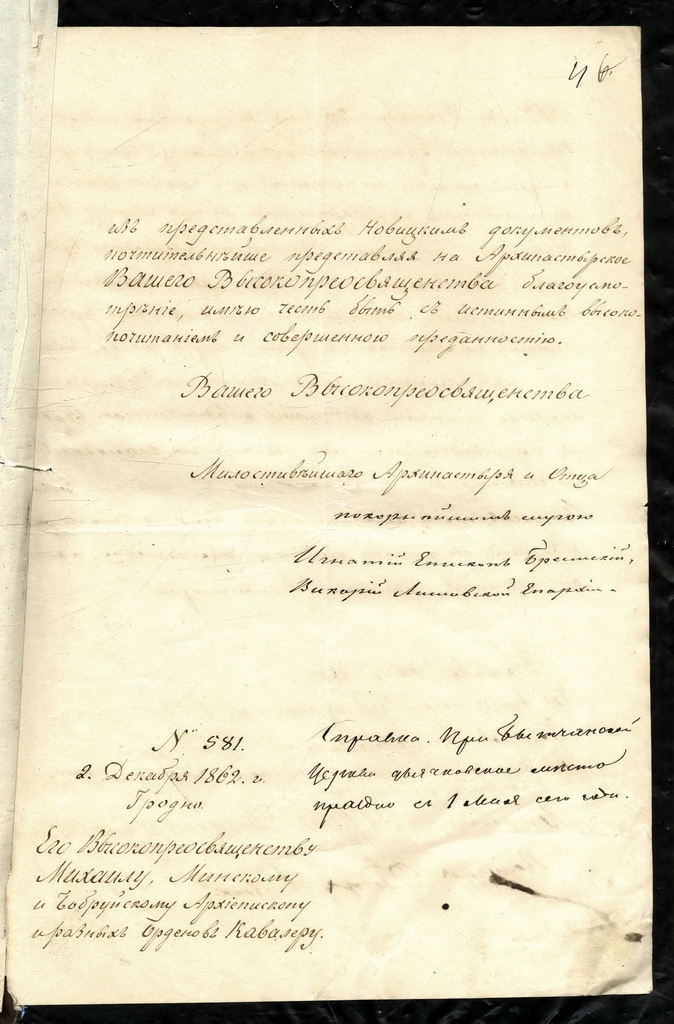 46.
изъ представленныхъ Новицкимъ документовъ,
почтительнѣйше представляя на Архипастырское
Вашего Высокопреосвященства благоусмо-
трѣніе, имѣю честь быть съ истиннымъ высоко-
почитаніемъ и совершенною преданностію.
Вашего Высокопреосвященства
Милостивѣйшаго Архипастыря и Отца
покорнѣйшимъ слугою
Игнатій Епископъ Брестскій,
Викарій Литовской Епархіи.
№ 581.
2. Декабря 1862. г.
Гродно.
Его Высокопреосвященству
Михаилу, Минскому
и Бобруйскому Архіепископу
и разныхъ Орденовъ Кавалеру.
Справка. При
Церкви дьячковское мѣсто
праздно съ 1 Мая сего года.